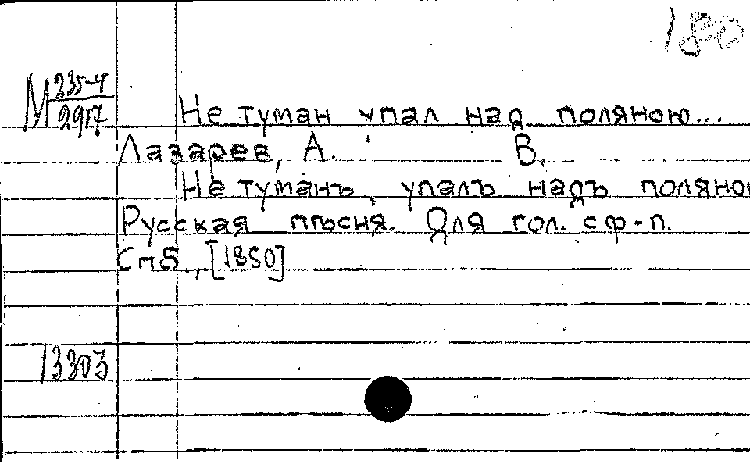 180
М 235-4
2917
Не туман упал над поляною...
Лазарев, А. В.
Не туманъ упалъ надъ поляною
Русская пѣсня. Для гол. с ф-п.
Спб., [1850]
13303